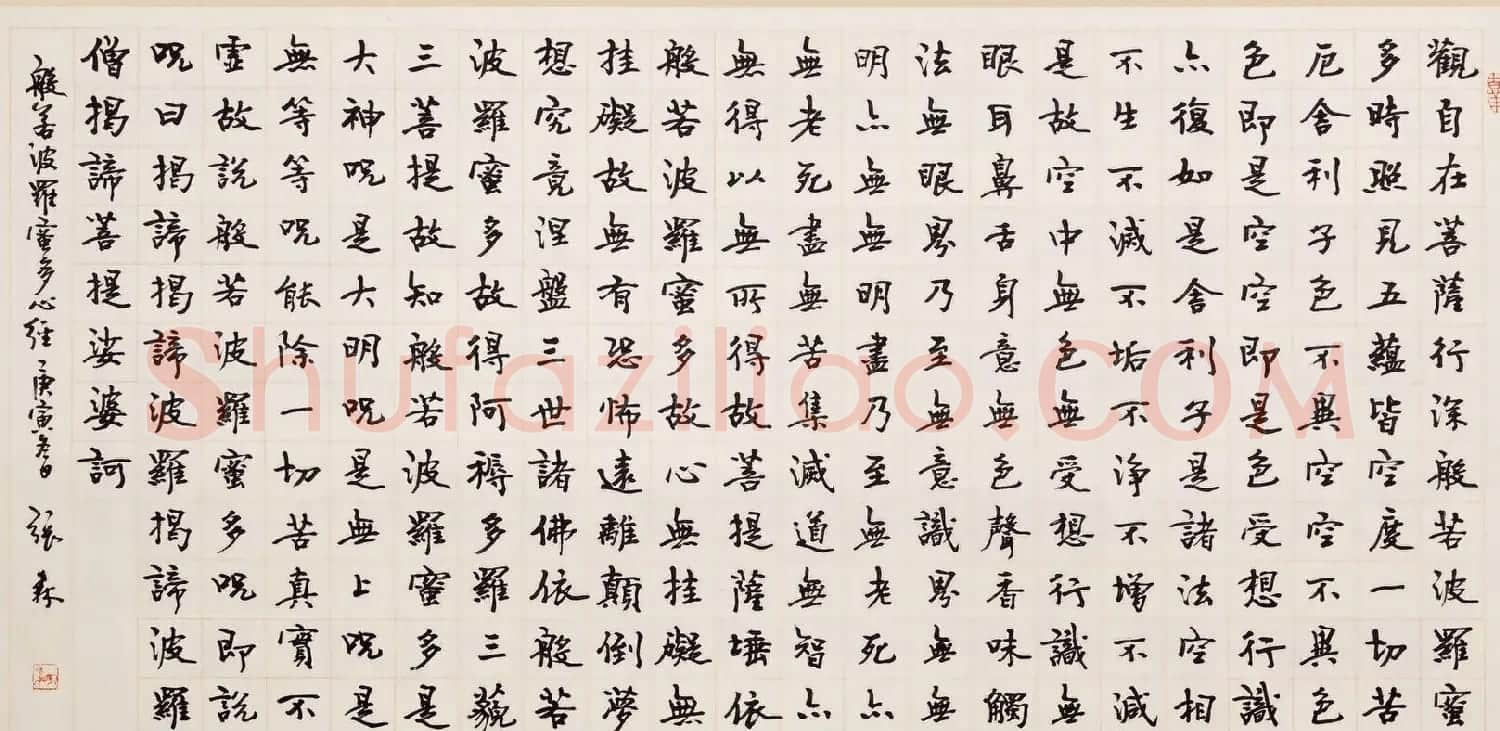 觀自在菩薩行深般若波羅蜜
多時照見五蘊皆空度一切苦
厄舍利子色不異空空不異色
色即是空空即是色受想行識
亦復如是舍利子是諸法空相
不生不滅不垢不淨不增不減
是故空中無色無受想行識無
眼耳鼻舌身意無色聲香味觸
法無眼界乃至無意識界無無
明亦無無明盡乃至無老死亦
無老死盡無苦集滅道無智亦
無得以無所得故菩提薩埵依
般若波羅蜜多故心無挂礙無
挂礙故無有恐怖遠離顛倒夢
想究竟涅盤三世諸佛依般若
波羅蜜多故得阿耨多羅三藐
三菩提故知般若波羅蜜多是
大神咒是大明咒是無上咒是
無等等咒能除一切苦真實不
虛故說般若波羅蜜多咒即說
咒曰揭諦揭諦波羅揭諦波羅
僧揭諦菩提娑婆訶
般若波羅蜜多心經 庚寅冬日 張森
Shufaziliao.COM